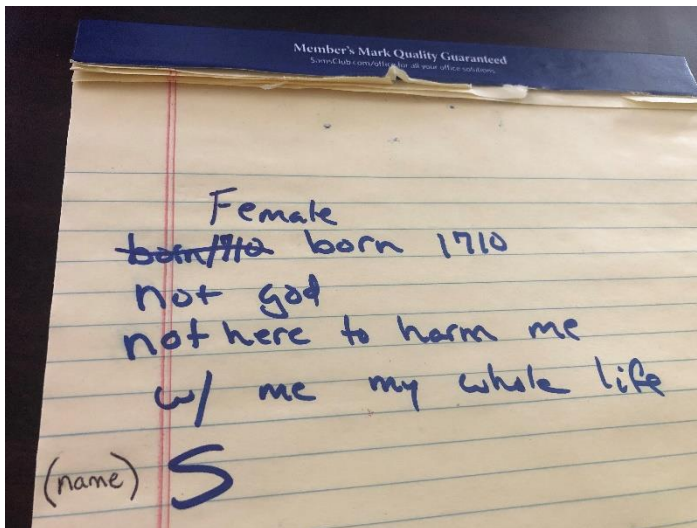 Member's Mark Quality Guaranteed
SamsClub.com/office for all your office solutions.
Female
born 1710 born 1710
not god
not here to harm me
w/ me my whole life
(name) S